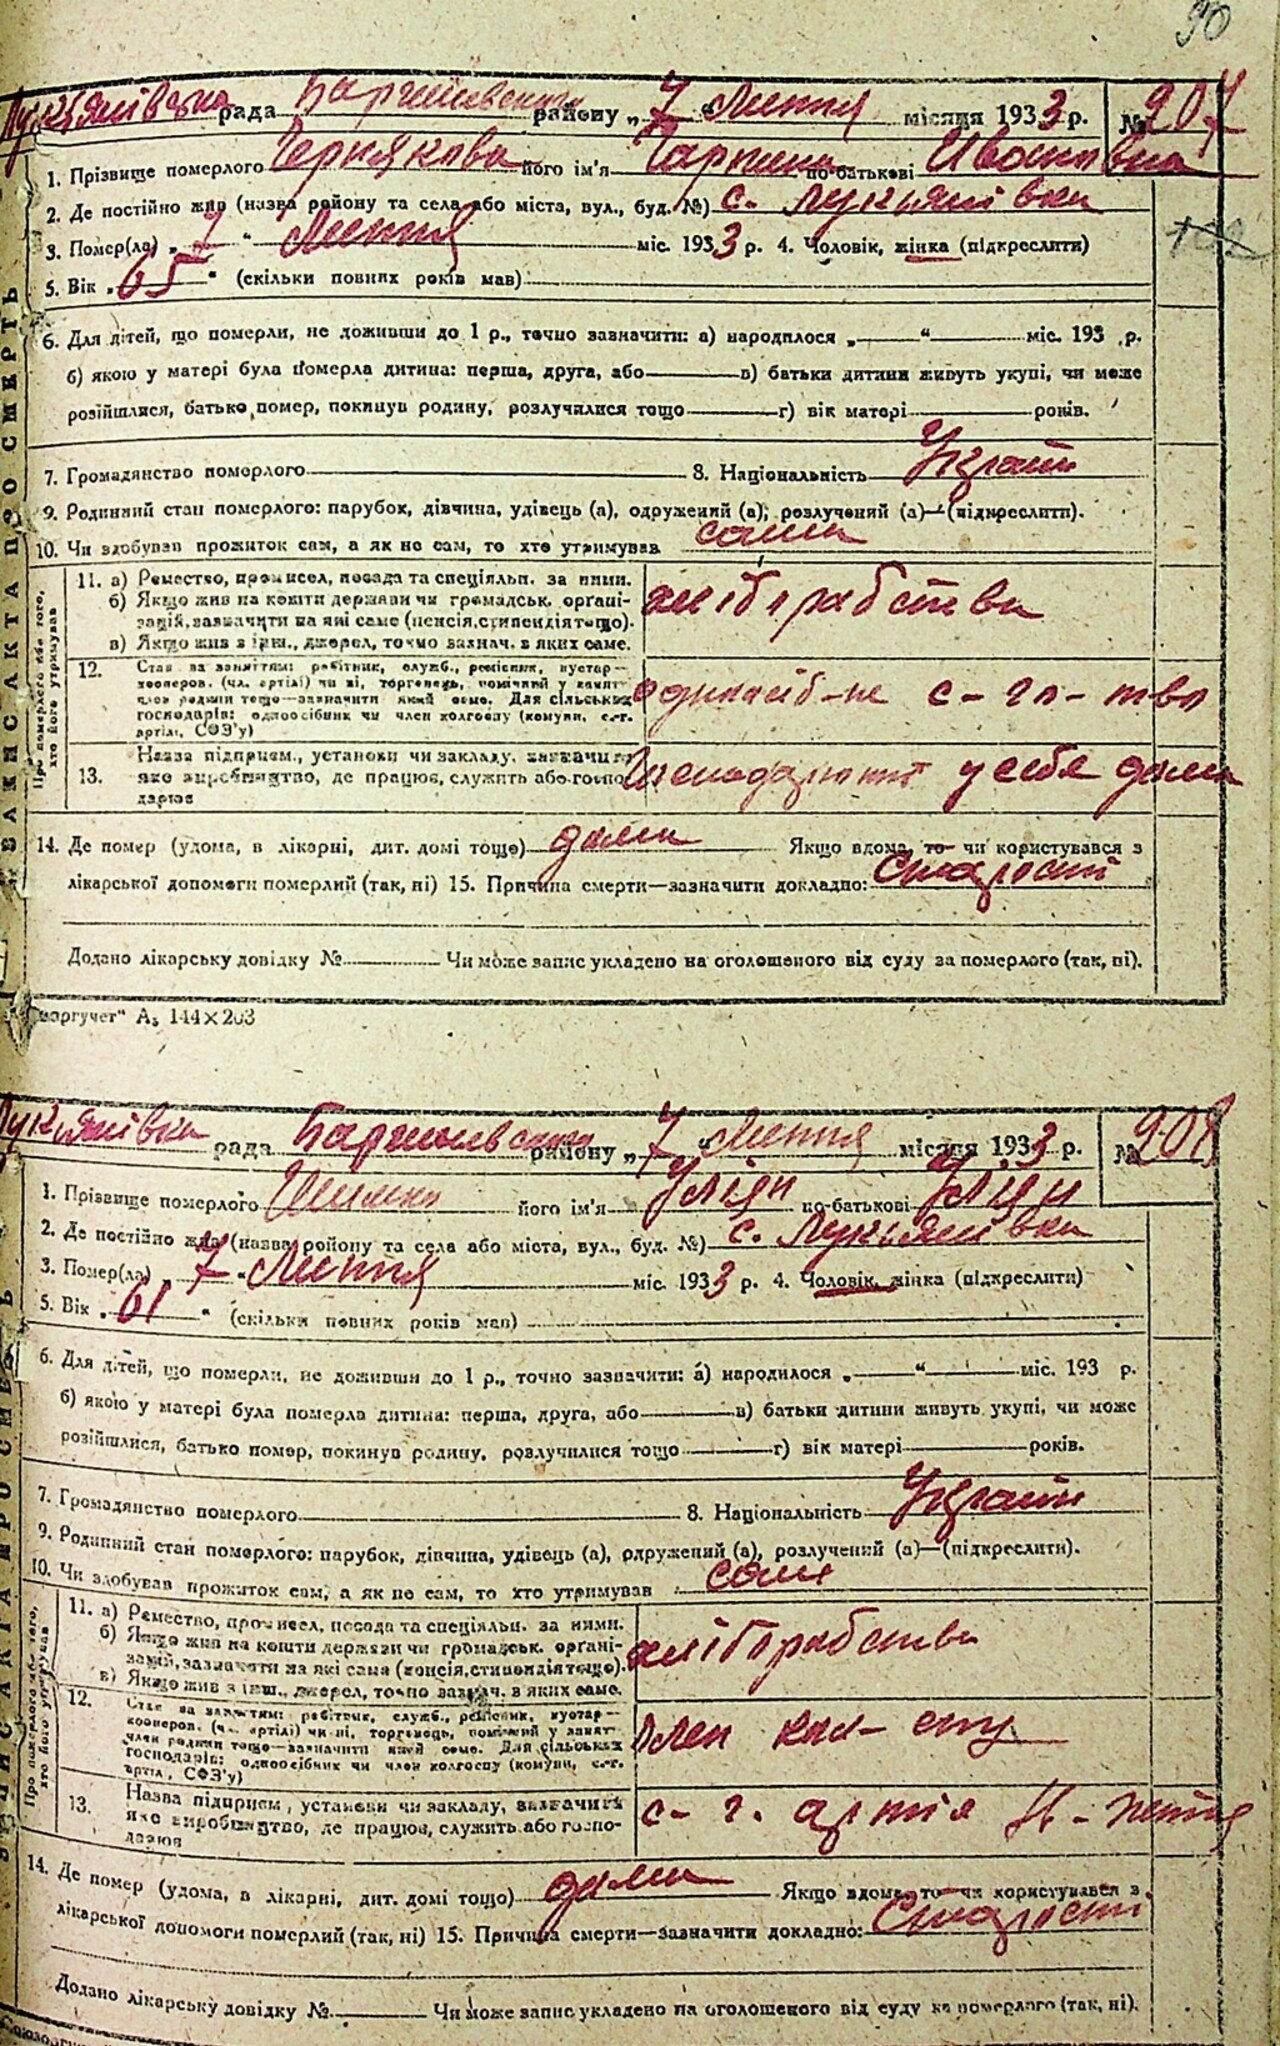 90
Лук'янівська рада Баришівського району „7 Липня місяця 1933 р. № 207
1. Прізвище померлого Чернякова його ім'я по-батькові Ивановна
2. Де постійно жив (назва району та села або міста, вул., буд. №) с. Лукьянівка
3. Помер(ла) „ 7 " Липня міс. 1933 р. 4. Чоловік, жінка (підкреслити)
5. Вік „ 65 " (скільки повних років мав)
6. Для дітей, що померли, не доживши до 1 р., точно зазначити: а) народилося „ " міс. 193 р.
б) якою у матері була померла дитина: перша, друга, або в) батьки дитини живуть укупі, чи може
розійшлися, батько помер, покинув родину, розлучилися тощо г) вік матері років.
7. Громадянство померлого 8. Національність Украін
9. Родинний стан померлого: парубок, дівчина, удівець (а), одружений (а), розлучений (а)—(підкреслити).
10. Чи здобував прожиток сам, а як не сам, то хто утримував сама
Про померлого або того, хто його утримував
11. а) Ремество, промисел, посада та спеціяльн. за ними.
б) Якщо жив на кошти держави чи громадськ. орґані-
зацій, зазначити на які саме (пенсія, стипендія тощо).
в) Якщо жив з інш., джерел, точно зазнач. з яких саме.
хліборобство
12. Стан за заняттям: робітник, служб., ремісник, кустар—
кооперов. (чл. артілі) чи ні, торговець, помічний у занят.
член родини тощо—зазначити який саме. Для сільських
господарів: одноосібник чи член колгоспу (комуни, с.-г.
артілі, СОЗ'у)
одиносіб-не с-го-тво
13. Назва підприєм., установи чи закладу, зазначити
яке виробництво, де працює, служить або госпо-
дарює
у себе дома
14. Де помер (удома, в лікарні, дит. домі тощо) дома Якщо вдома, то чи користувався з
лікарської допомоги померлий (так, ні) 15. Причина смерти—зазначити докладно: Старости
Додано лікарську довідку № Чи може запис укладено на оголошеного від суду за померлого (так, ні).
ЗАПИСКА ПРО СМЕРТЬ
"оргучет" А₅ 144×203
Лук'янівка рада Баришівського району „7 Липня місяця 1933 р. № 208
1. Прізвище померлого його ім'я по-батькові
2. Де постійно жив (назва району та села або міста, вул., буд. №) с. Лукьянівка
3. Помер(ла) „ 7 " Липня міс. 1933 р. 4. Чоловік, жінка (підкреслити)
5. Вік „ 61 " (скільки повних років мав)
6. Для дітей, що померли, не доживши до 1 р., точно зазначити: а) народилося „ " міс. 193 р.
б) якою у матері була померла дитина: перша, друга, або в) батьки дитини живуть укупі, чи може
розійшлися, батько помер, покинув родину, розлучилися тощо г) вік матері років.
7. Громадянство померлого 8. Національність Украін
9. Родинний стан померлого: парубок, дівчина, удівець (а), одружений (а), розлучений (а)—(підкреслити).
10. Чи здобував прожиток сам, а як не сам, то хто утримував сам
Про померлого або того, хто його утримував
11. а) Ремество, промисел, посада та спеціяльн. за ними.
б) Якщо жив на кошти держави чи громадськ. орґані-
зацій, зазначити на які саме (пенсія, стипендія тощо).
в) Якщо жив з інш., джерел, точно зазнач. з яких саме.
хліборобство
12. Стан за заняттям: робітник, служб., ремісник, кустар—
кооперов. (чл. артілі) чи ні, торговець, помічний у занят.
член родини тощо—зазначити який саме. Для сільських
господарів: одноосібник чи член колгоспу (комуни, с.-г.
артілі, СОЗ'у)
член кол-спу
13. Назва підприєм., установи чи закладу, зазначити
яке виробництво, де працює, служить або госпо-
дарює
с-г. артіл
14. Де помер (удома, в лікарні, дит. домі тощо) дома Якщо вдома, то чи користувався з
лікарської допомоги померлий (так, ні) 15. Причина смерти—зазначити докладно: Старости
Додано лікарську довідку № Чи може запис укладено на оголошеного від суду за померлого (так, ні).
ЗАПИСКА ПРО СМЕРТЬ